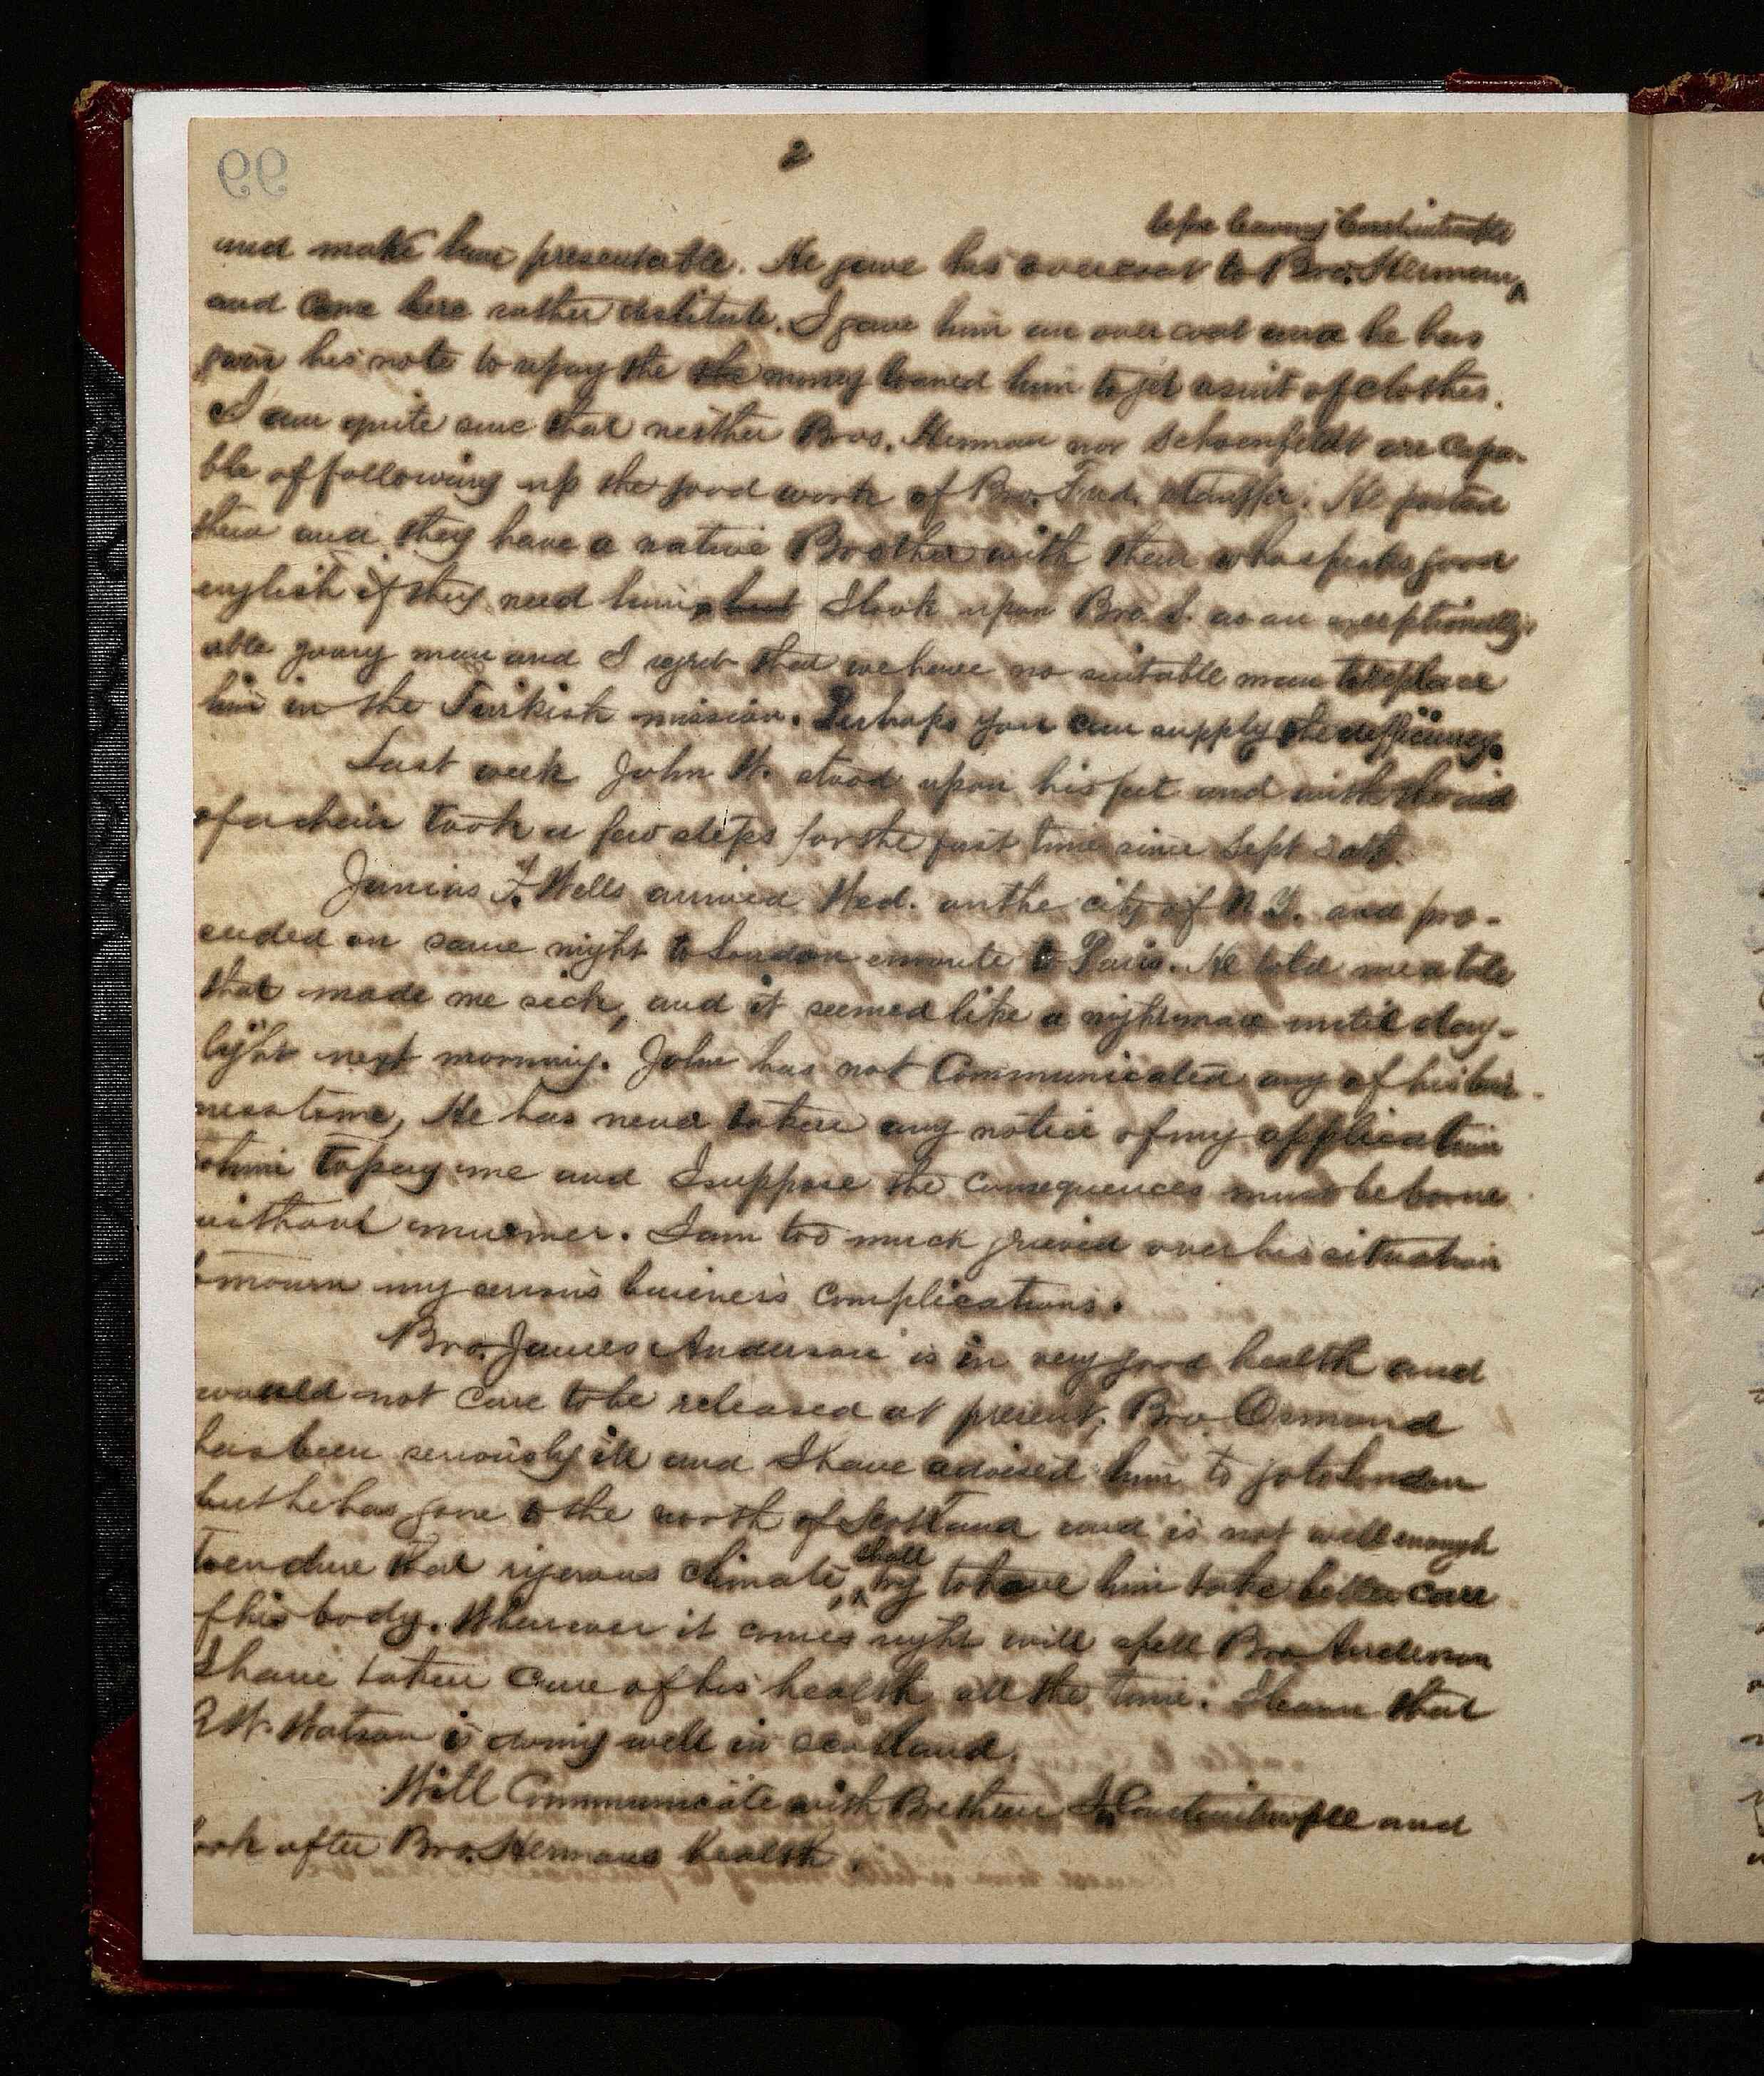 99
2
before leaving Constantinople
and make him presentable. He gave his overcoat to Bro. Herman ^
and came here rather destitute. I gave him an over coat and he has
given his note to repay the the money loaned him to get a suit of clothes.
I am quite sure that neither Bros. Herman nor Schoenfeldt are capa-
ble of following up the good work of Bro. Ferd. Stauffer. He posted
them and they have a native Brother with them who speaks good
english if they need him, but I look upon Bro. S. as an exceptionally
able young man and I regret that we have no suitable man to replace
him in the Turkish mission. Perhaps you can supply the defficiency.
Last week John W. stood upon his feet and with the aid
of a chair took a few steps for the first time since Sept 20th.
Junius F. Wells arrived Wed. on the city of N.Y. and pro-
ceeded on same night to London enroute to Paris. He told me a tale
that made me sick, and it seemed like a nightmare until day-
light next morning. John has not Communicated any of his busi-
ness to me, He has never taken any notice of my application
to him to pay me and I suppose the consequences must be borne
without murmer. I am too much grieved over his situation
to mourn my serious business complications.
Bro. James Anderson is in very good health and
would not care to be released at present, Bro. Ormond
has been seriously ill and I have advised him to go to London
but he has gone to the north of Scotland and is not well enough
to endure that rigerous climate, ^ shall try to have him take better care
of his body. Whenever it comes right will spell Bro Anderson
I have taken care of his health all the time. I learn that
W. Watson is doing well in Scotland.
Will Communicate with Brethren Constantinople and
look after Bro. Hermans health.